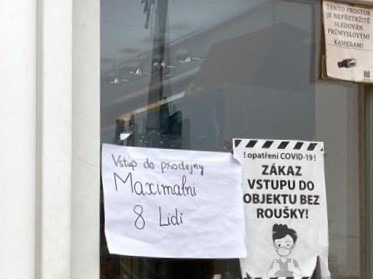 TENTO PROSTOR
JE NEPŘETRŽITĚ
SLEDOVÁN
PRŮMYSLOVÝMI
KAMERAMI
Vstup do prodejny
Maximalní
8 Lidí
! opatření COVID-19 !
ZÁKAZ
VSTUPU DO
OBJEKTU BEZ
ROUŠKY!